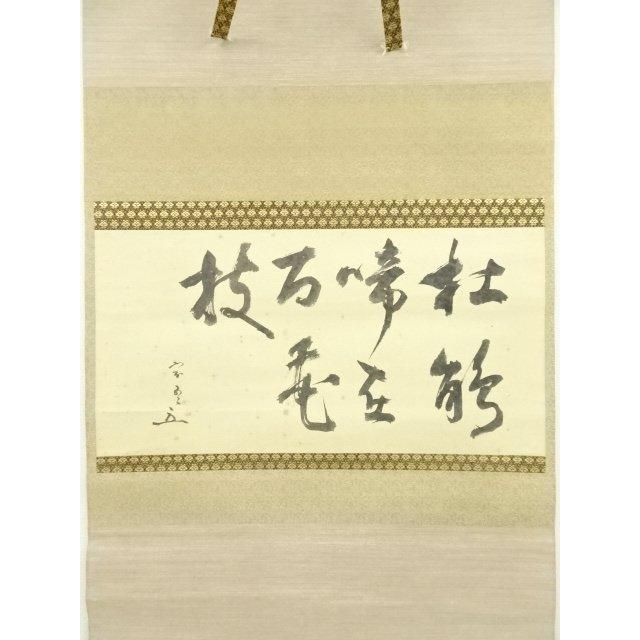 杜鵑
啼在
百花
枝